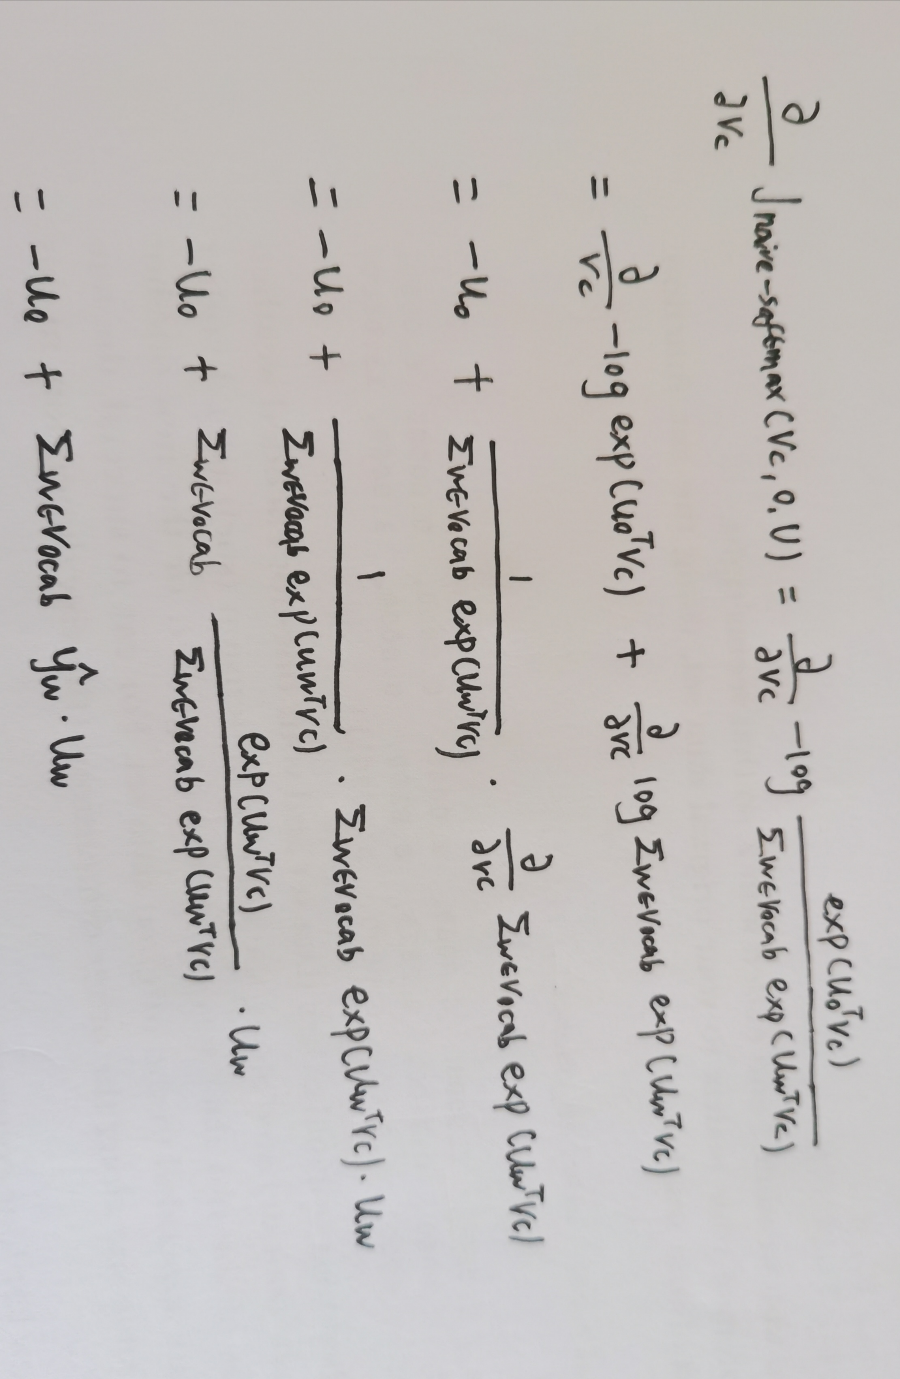 ∂/∂Vc J naive-softmax(Vc, O, U) = ∂/∂Vc -log exp(Uo^T Vc) / Σw∈Vocab exp(Uw^T Vc)
= ∂/Vc -log exp(Uo^T Vc) + ∂/∂Vc log Σw∈Vocab exp(Uw^T Vc)
= -Uo + 1 / Σw∈Vocab exp(Uw^T Vc) · ∂/∂Vc Σw∈Vocab exp(Uw^T Vc)
= -Uo + 1 / Σw∈Vocab exp(Uw^T Vc) · Σw∈Vocab exp(Uw^T Vc) · Uw
= -Uo + Σw∈Vocab exp(Uw^T Vc) / Σw∈Vocab exp(Uw^T Vc) · Uw
= -Uo + Σw∈Vocab ŷw · Uw